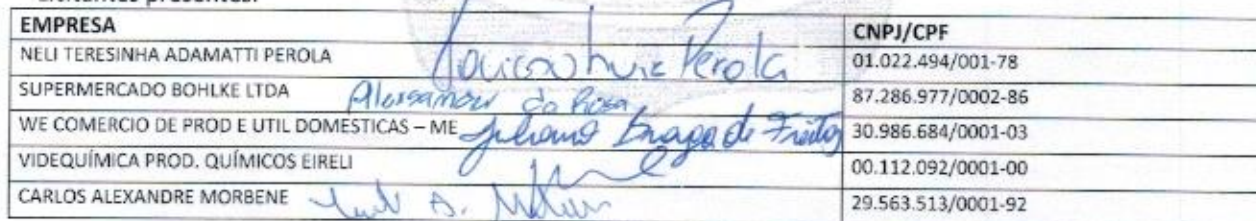 EMPRESA CNPJ/CPF
NELI TERESINHA ADAMATTI PEROLA Luiz Perola 01.022.494/001-78
SUPERMERCADO BOHLKE LTDA da Rosa 87.286.977/0002-86
WE COMERCIO DE PROD E UTIL DOMESTICAS – ME Juliano Braga de Freitas 30.986.684/0001-03
VIDEQUÍMICA PROD. QUÍMICOS EIRELI 00.112.092/0001-00
CARLOS ALEXANDRE MORBENE 29.563.513/0001-92